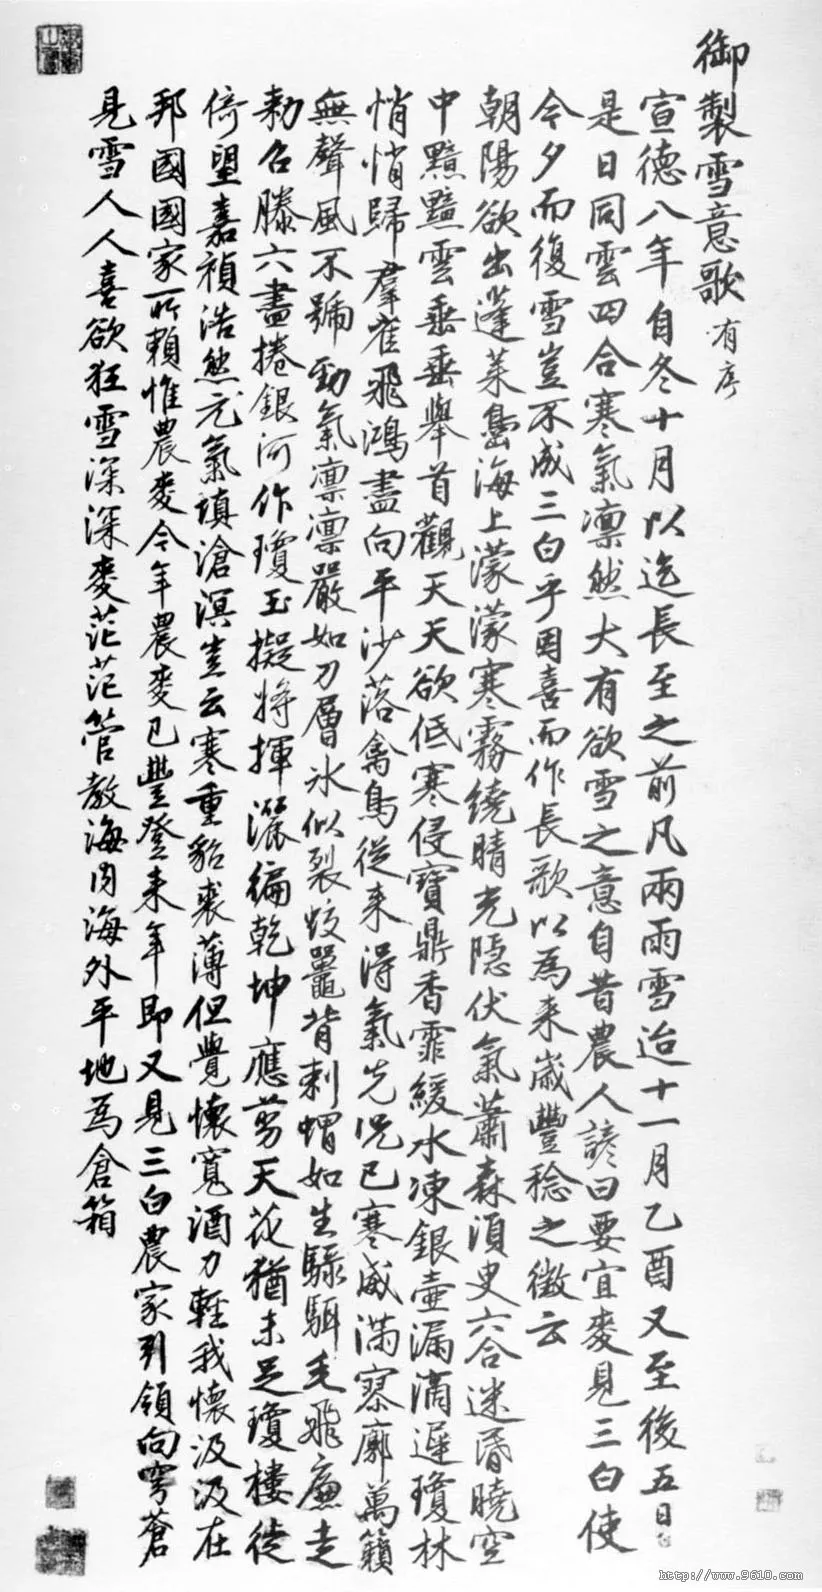 御製雪意歌 有序
宣德八年自冬十月以迄長至之前凡兩雨雪迨十一月乙酉又至後五日
是日同雲四合寒氣凜然大有欲雪之意自昔農人諺曰要宜麥見三白使
今夕而復雪豈不成三白乎因喜而作長歌以為來歲豐稔之徵云
朝陽欲出蓬萊島海上濛濛寒霧繞晴光隱伏氣蕭森須臾六合迷昏曉空
中黯黯雲垂垂舉首觀天天欲低寒侵寶鼎香霏緩水凍銀壺漏滴遲瓊林
悄悄歸群雀飛鴻盡向平沙落禽鳥從來得氣先況已寒威滿寥廓萬籟
無聲風不號勁氣凜凜嚴如刀層冰似裂蛟鼉背刺蝟如生騄駬毛飛廉走
勅召滕六盡捲銀河作瓊玉擬將揮灑徧乾坤應剪天花猶未足瓊樓徙
倚望嘉禎浩然元氣填滄溟豈云寒重貂裘薄但覺懷寬酒力輕我懷汲汲在
邦國國家所賴惟農麥今年農麥已豐登來年即又見三白農家引領向穹蒼
見雪人人喜欲狂雪深深麥茫茫管教海內海外平地為倉箱
http://www.9610.com